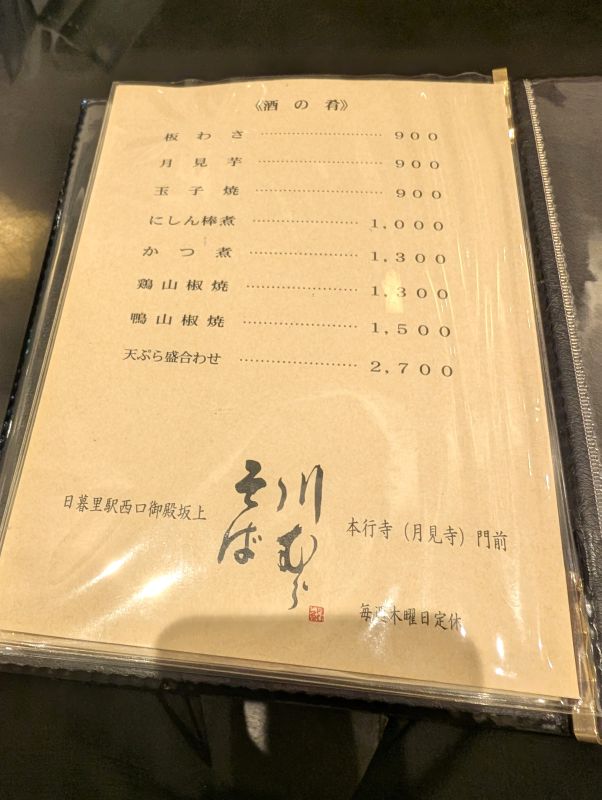 《酒の肴》
板わさ………………900
月見芋………………900
玉子焼………………900
にしん棒煮………………1,000
かつ煮………………1,300
鶏山椒焼………………1,300
鴨山椒焼………………1,500
天ぷら盛合わせ………………2,700
川むら
そば
日暮里駅西口御殿坂上
本行寺（月見寺）門前
毎週木曜日定休